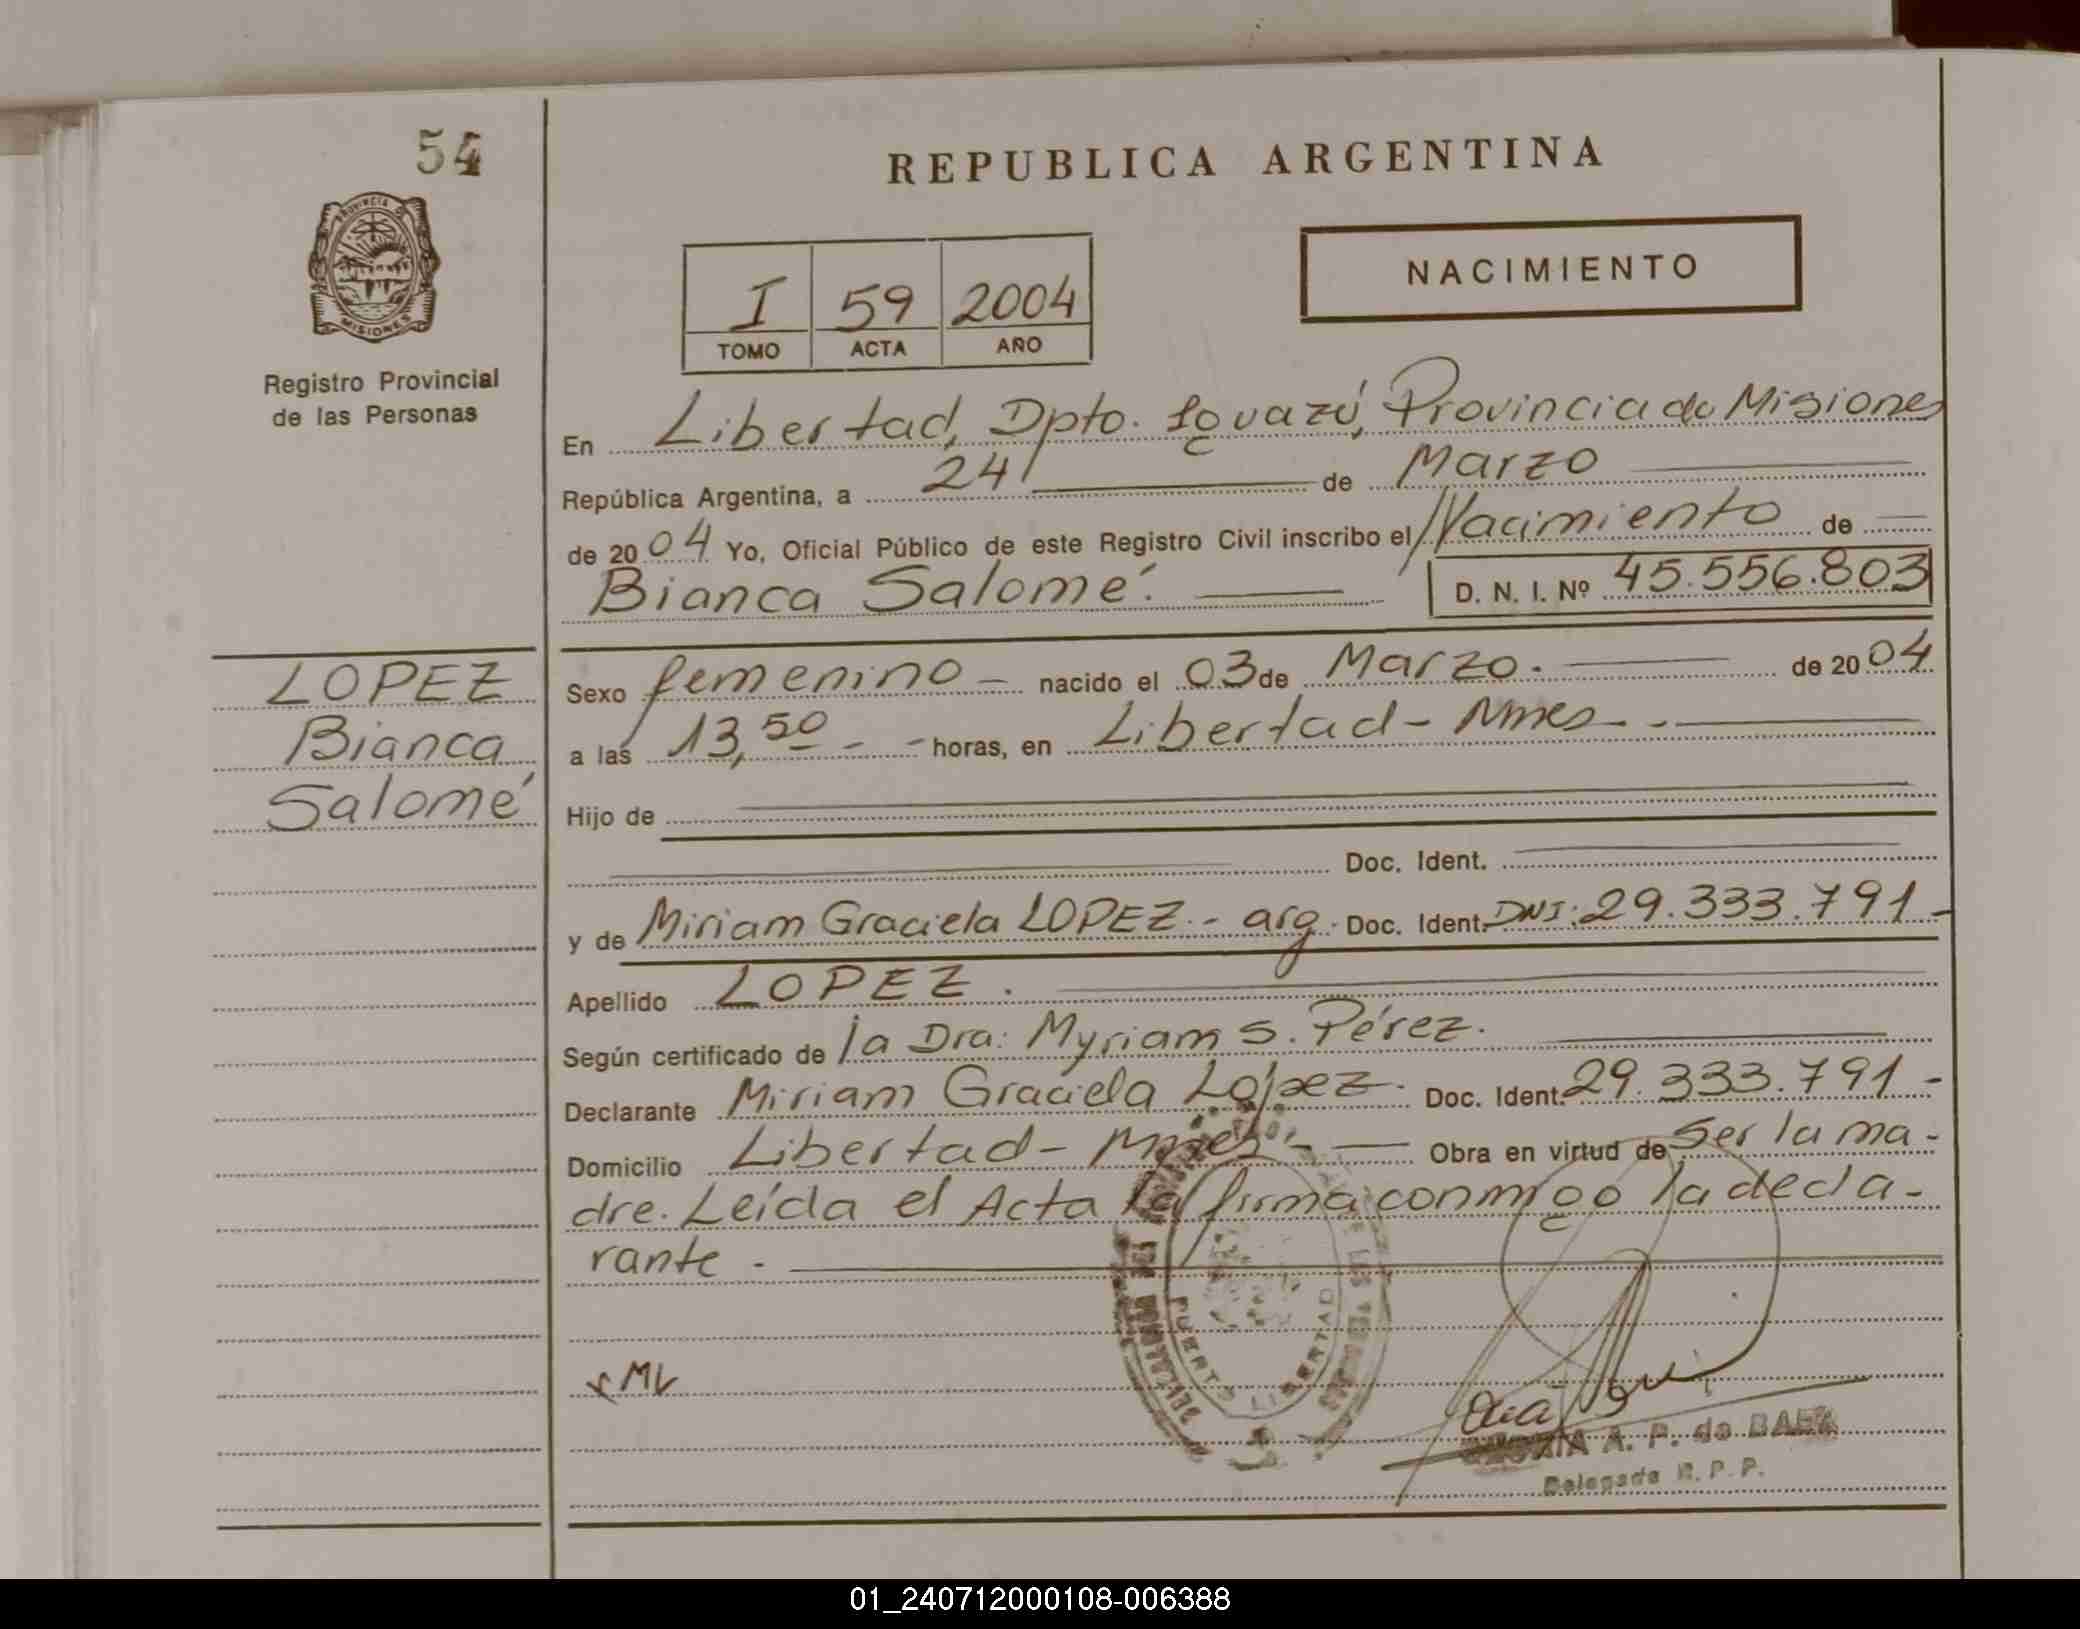 54
REPUBLICA ARGENTINA
PROVINCIA DE
MISIONES
Registro Provincial
de las Personas
I 59 2004
TOMO ACTA AÑO
NACIMIENTO
En Libertad, Dpto. Iguazú, Provincia de Misiones
República Argentina, a 24 de Marzo
de 2004 Yo, Oficial Público de este Registro Civil inscribo el Nacimiento de
Bianca Salomé. D. N. I. Nº 45.556.803
LOPEZ
Bianca
Salomé
Sexo femenino - nacido el 03 de Marzo. de 2004
a las 13,50 - - horas, en Libertad - Mnes - -
Hijo de
Doc. Ident.
y de Miriam Graciela LOPEZ - arg. Doc. Ident. DNI: 29.333.791 -
Apellido LOPEZ.
Según certificado de la Dra: Myriam S. Pérez.
Declarante Miriam Graciela López. Doc. Ident. 29.333.791 -
Domicilio Libertad - Mnes - Obra en virtud de Ser la ma-
dre. Leída el Acta la firma conmigo la decla-
rante -
PUERTO LIBERTAD
ML
A. P. de BAEZ
Delegada R. P. P.
01_240712000108-006388